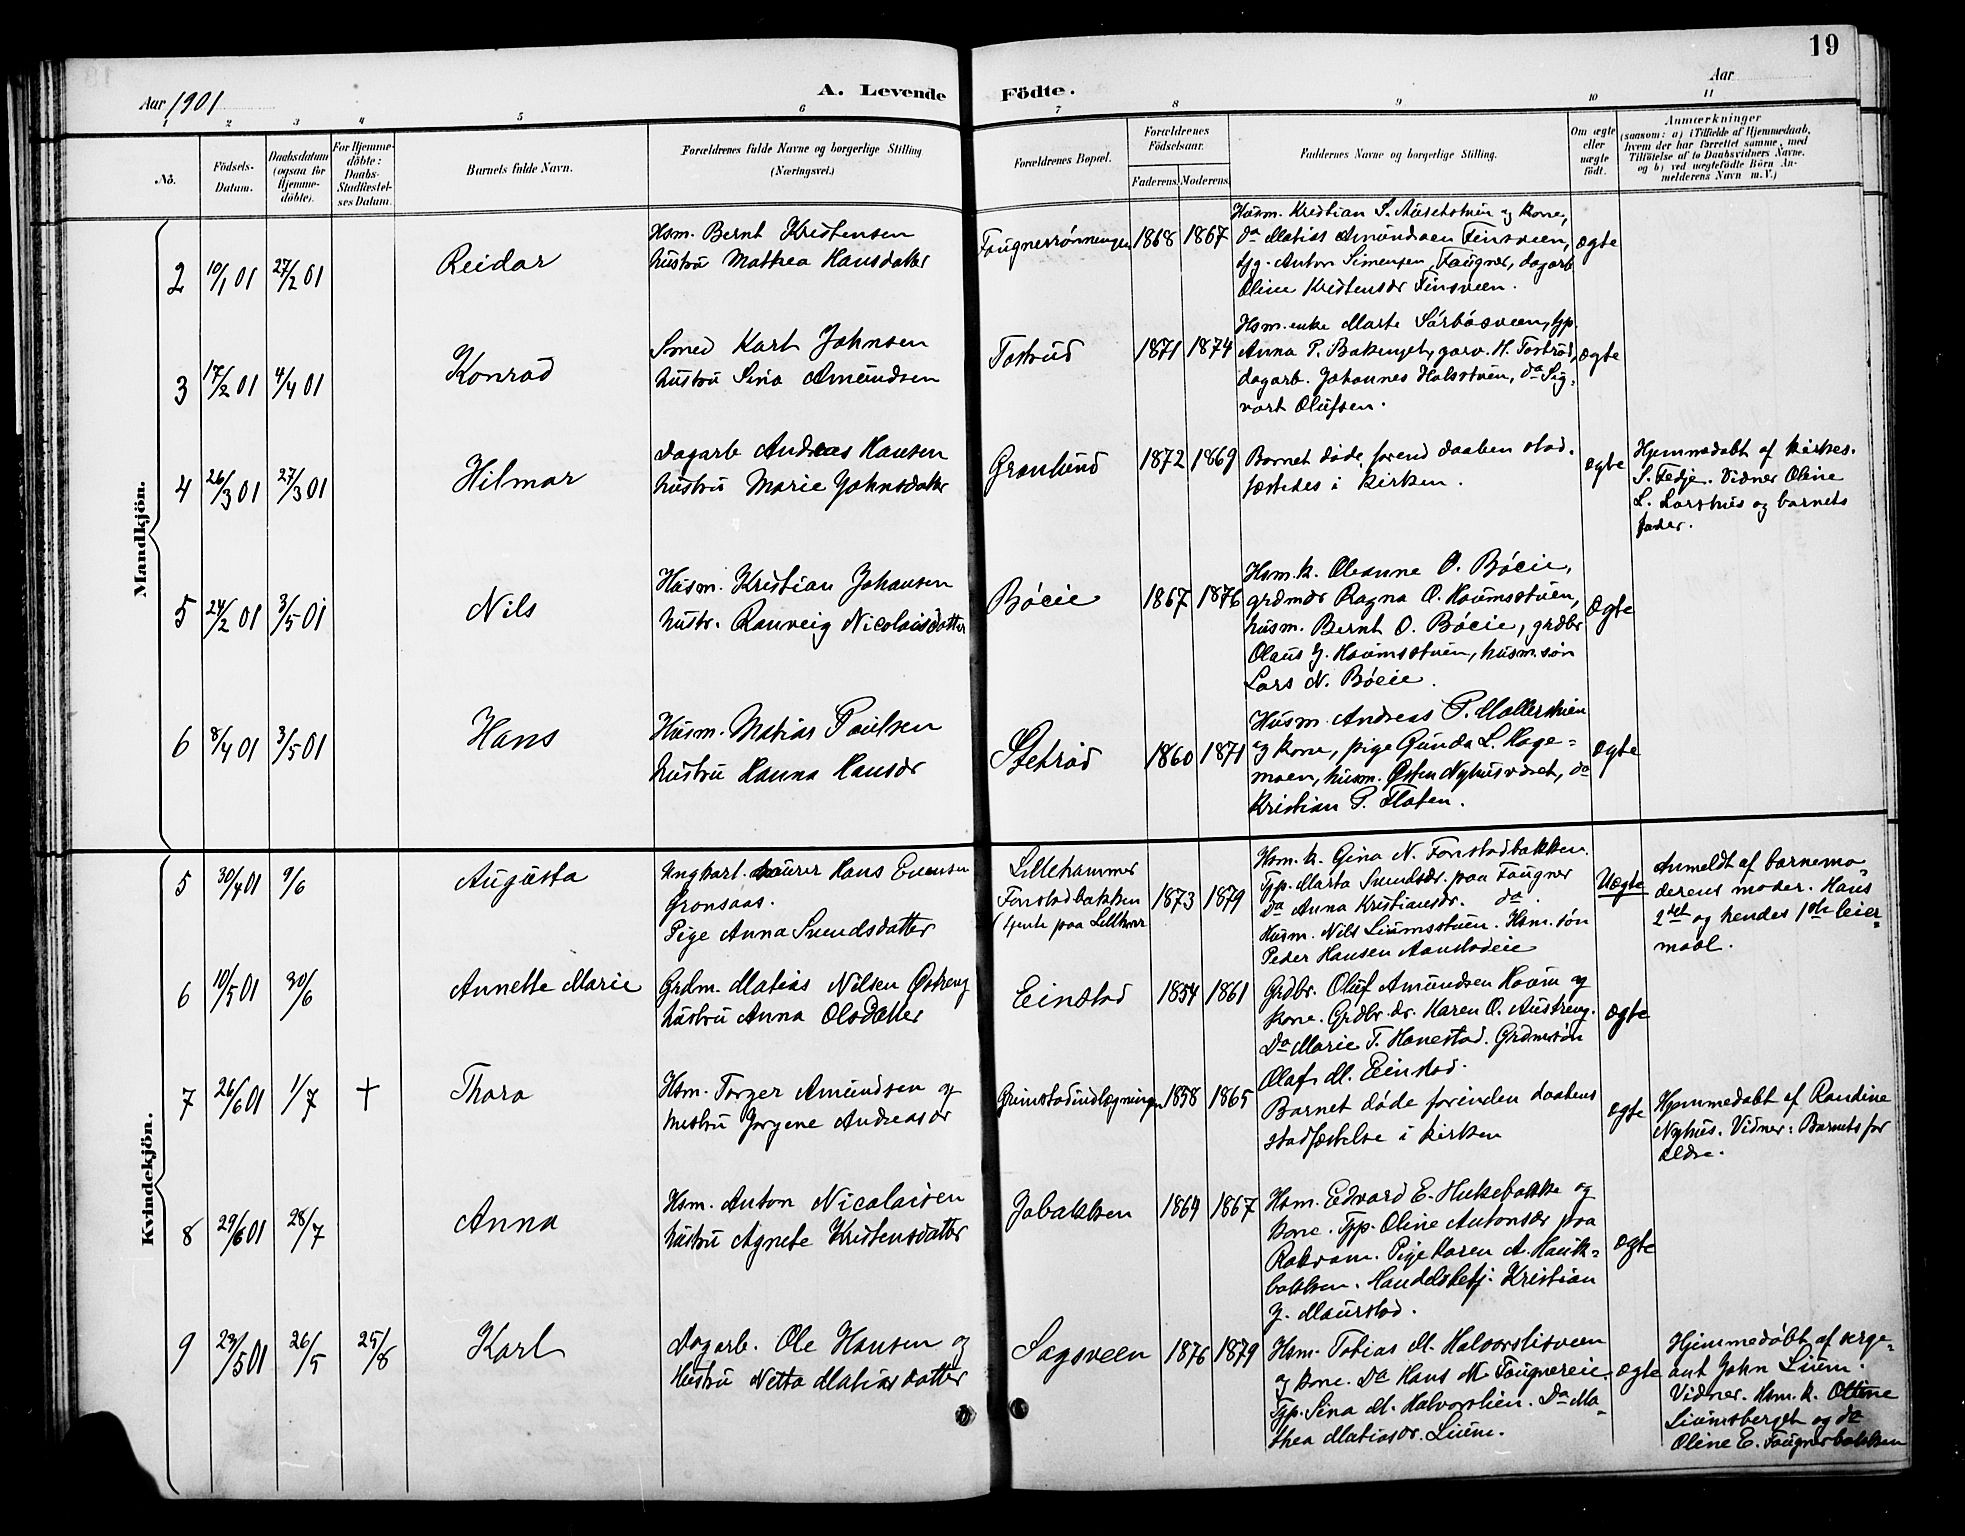 19
Aar 1901
A. Levende Födte.
Aar
1 2 3 4 5 6 7 8 9 10 11
No.
Födsels-Datum.
Daabsdatum (ogsaa for Hjemme-döbte).
For Hjemme-döbte: Daabs-Stadfæstel-ses Datum.
Barnets fulde Navn.
Forældrenes fulde Navne og borgerlige Stilling (Næringsvei.)
Forældrenes Bopæl.
Forældrenes Födselsaar.
Faderens. Moderens.
Faddernes Navne og borgerlige Stilling.
Om ægte eller uægte födt.
Anmærkninger
(saasom: a) i Tilfælde af Hjemmedaab,
hvem der har forrettet samme, med
Tilföielse af to Daabsvidners Navne,
og b) ved uægtefödte Börn An-
melderens Navn m. V.)
Mandkjön.
2 10/1 01 27/2 01
Reidar
Hsm. Bernt Kristensen
hustru Mathea Hansdatter
Faugnerrønningen
1868 1867
Husm. Kristian S. Aasetstuen og kone,
do Matias Amundsen Finsveen,
Anton Simensen, Faugner, dagarb.
Oline Kristensdr Finsveen.
ægte
3 17/2 01 4/4 01
Konrad
Smed Karl Johnsen
hustru Sina Amundsen
Tostrud
1871 1874
Hsm. enke Marte Sørbøsveen, tjp.
Anna P. Bakenget, garv. H. Tostrud,
dagarb. Johannes Holsstuen, do Sig-
vart Olufsen.
ægte
4 26/3 01 27/3 01
Hilmar
Dagarb Andreas Hansen
hustru Marie Johnsdatter
Grønlund
1872 1869
Barnet døde forend daaben stad-
fæstedes i kirken.
ægte
Hjemmedøbt af kirkes.
S. Fedje. Vidner Oline
L. Larshus og barnets
fader.
5 24/2 01 3/5 01
Nils
Husm. Kristian Johansen
hustr. Ranveig Nicolaisdatter
Bøeie
1867 1876
Hsm. k. Oleanne O. Bøeie,
grdmdr Ragna O. Houmsstuen,
husm. Bernt O. Bøeie, grdbr
Olaus J. Houmsstuen, husm. søn
Lars N. Bøeie.
ægte
6 8/4 01 3/5 01
Hans
Husm. Matias Paulsen
hustru Hanna Hansdr
Stetrød
1860 1871
Husm. Andreas P. Møllerstuen
og kone, pige Gunda L. Hage-
moen, husm. Østen Nyhusødet, do
Kristian P. Flaten.
ægte
Kvindekjön.
5 30/4 01 9/6
Augusta
Ungkarl. maurer Hans Evensen
Gronsaas.
Pige Anna Svendsdatter
Lillehammer
Fonstadbakken
(tjente paa Lillhmr
1873 1879
Hsm. k. Gina N. Fonstadbakken.
Tjp. Marta Svendsdr. paa Faugner
Do Anna Kristiansdr. do
Husm. Nils Liumsstuen. Hsm. søn
Peder Hansen Aanstadeie
Uægte
Anmeldt af barnemo-
derens moder. Hans
2det og hendes 1ste leier-
maal.
6 10/5 01 30/6
Annette Marie
Grdm. Matias Nilsen Østreng
hustru Anna Olsdatter
Einstad
1854 1861
Grdbr. Oluf Amundsen Houm og
kone. Grdbr. dr. Karen O. Austreng.
Do Marie T. Hanestad. Grdmsøn
Olaf M. Einstad.
ægte
7 26/6 01 1/7 +
Thora
Hsm. Torger Amundsen og
hustru Jørgene Andreasdr
Grimstadindlægningen
1858 1865
Barnet døde forinden daabens
stadfæstelse i kirken
ægte
Hjemmedøbt af Randine
Nyhus. Vidner: Barnets for
ældre.
8 29/6 01 28/7
Anna
Hsm. Anton Nicolaisen
hustru Agnete Kristensdatter
Jobakken
1864 1867
Hsm. Edvard E. Hukebakke og
kone. Tjp. Oline Antonsdr paa
Rokvam. Pige Karen A. Hauk-
bakken. Handelsbetj. Kristian
J. Maurstad.
ægte
9 23/5 01 26/5 25/8
Karl
Dagarb. Ole Hansen og
Hustru Netta Matiasdatter
Sagsveen
1876 1879
Hsm. Tobias M. Halvorslisveen
og kone. Do Hans M. Faugnereie.
Tjp. Sina M. Halvorslien. Do Ma-
thea Matiasdr. Lium.
ægte
Hjemmedøbt af serge-
ant John Lium.
Vidner. Hsm. k. Oline
Liumsberget og do
Oline E. Faugnerbakken